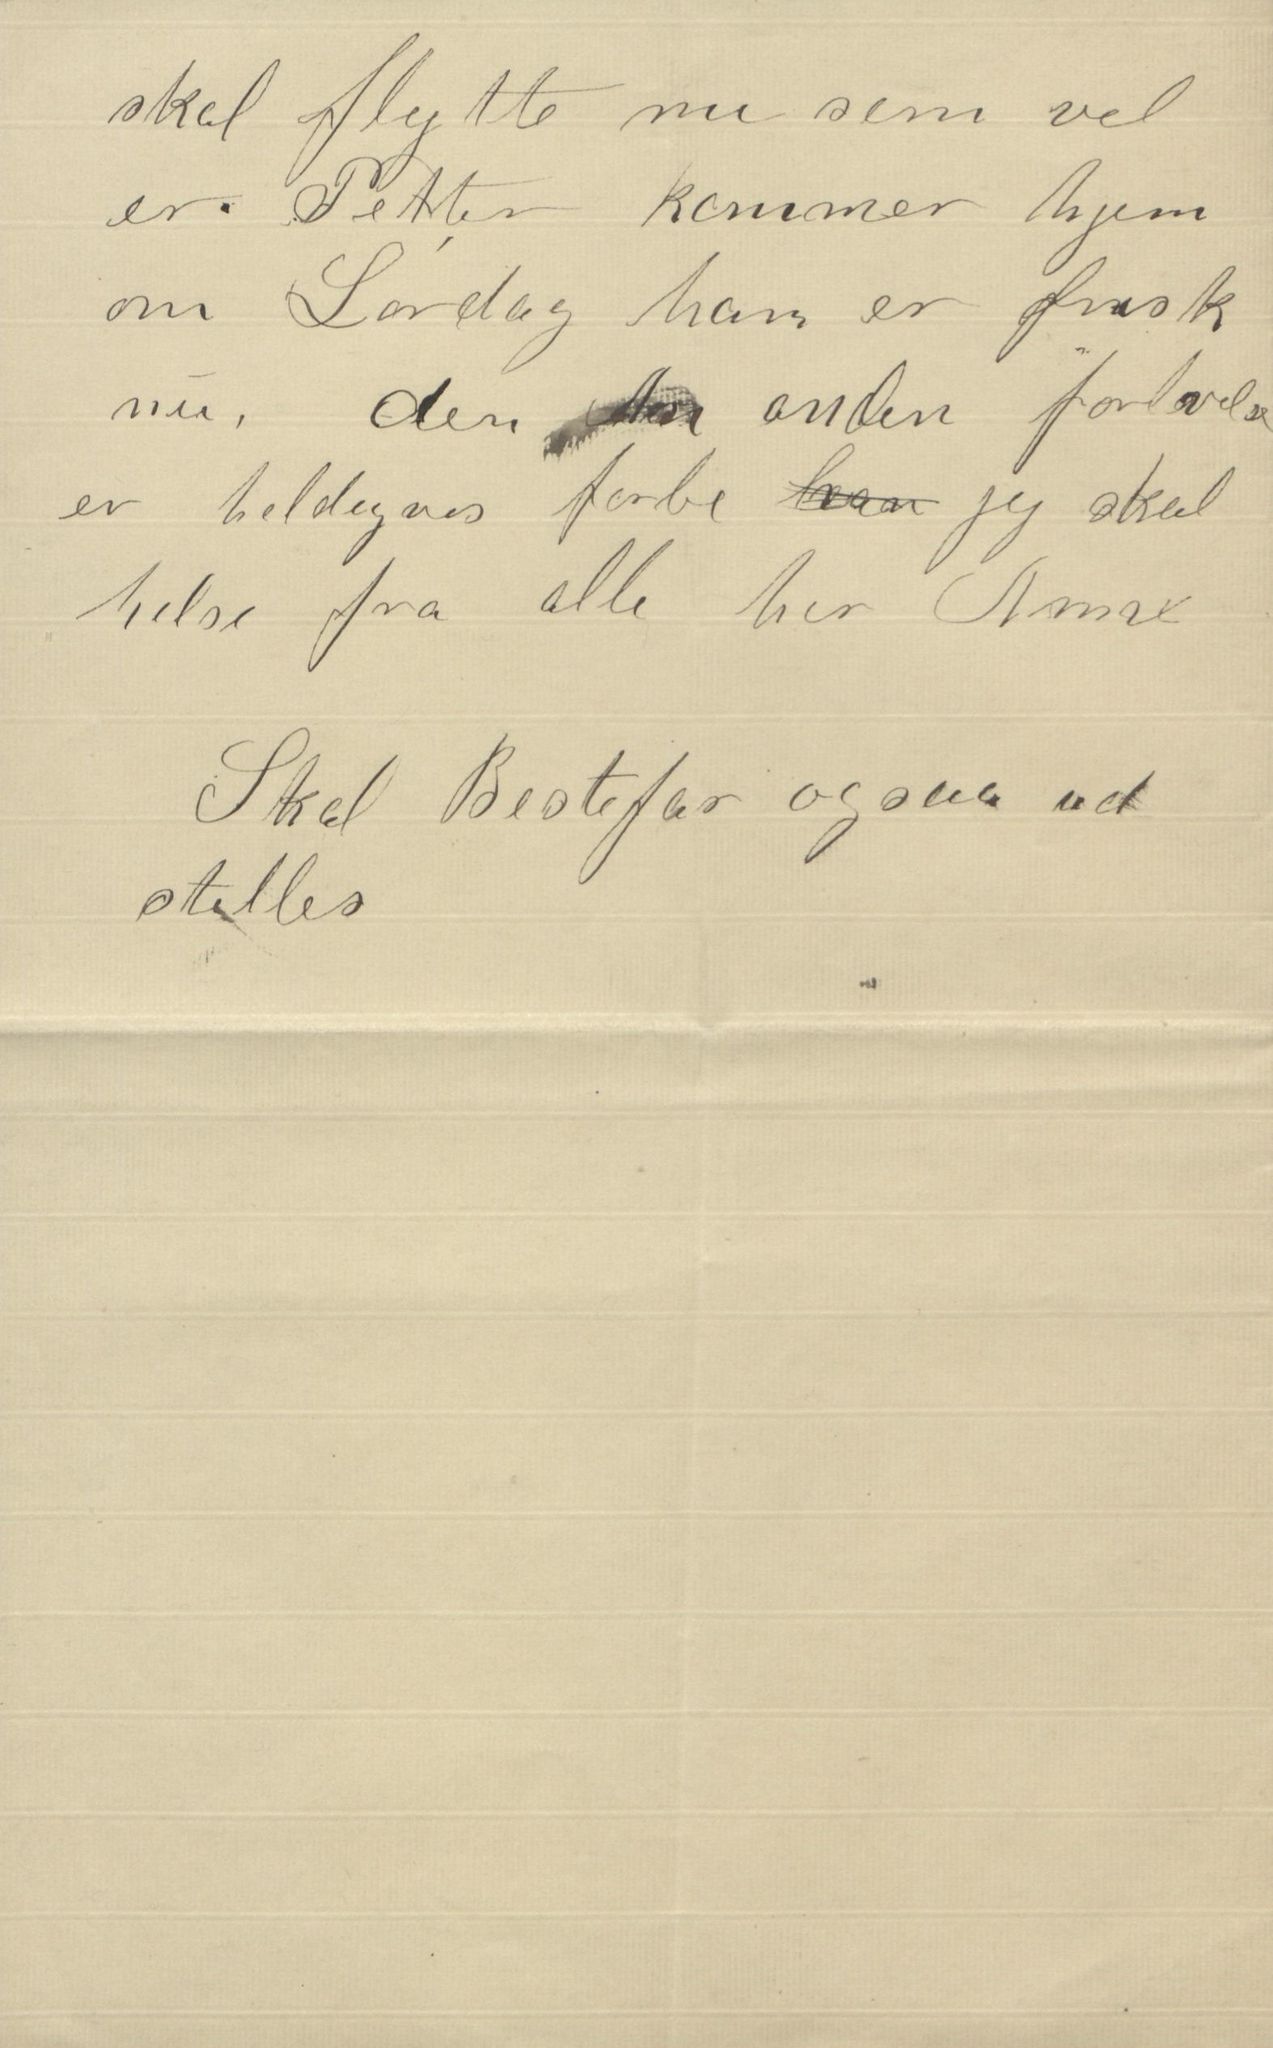 skal flytte nu som vel
er. Petter kommer hjem
om Lørdag han er frisk
nu, den anden forlovelse
er heldigvis forbi han jeg skal
helse fra alle her
Skal Bestefar ogsaa ud
stilles